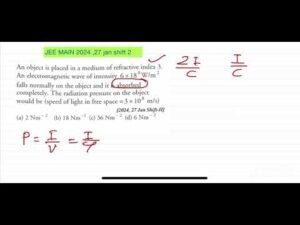 JEE MAIN 2024 ,27 jan shift 2
An object is placed in a medium of refractive index 3.
An electromagnetic wave of intensity 6 × 10⁸ W/m²
falls normally on the object and it is absorbed
completely. The radiation pressure on the object
would be (speed of light in free space = 3 × 10⁸ m/s)
[2024, 27 Jan Shift-II]
(a) 2 Nm⁻² (b) 18 Nm⁻² (c) 36 Nm⁻² (d) 6 Nm⁻²
2I/C I/C
P = I/V = I/